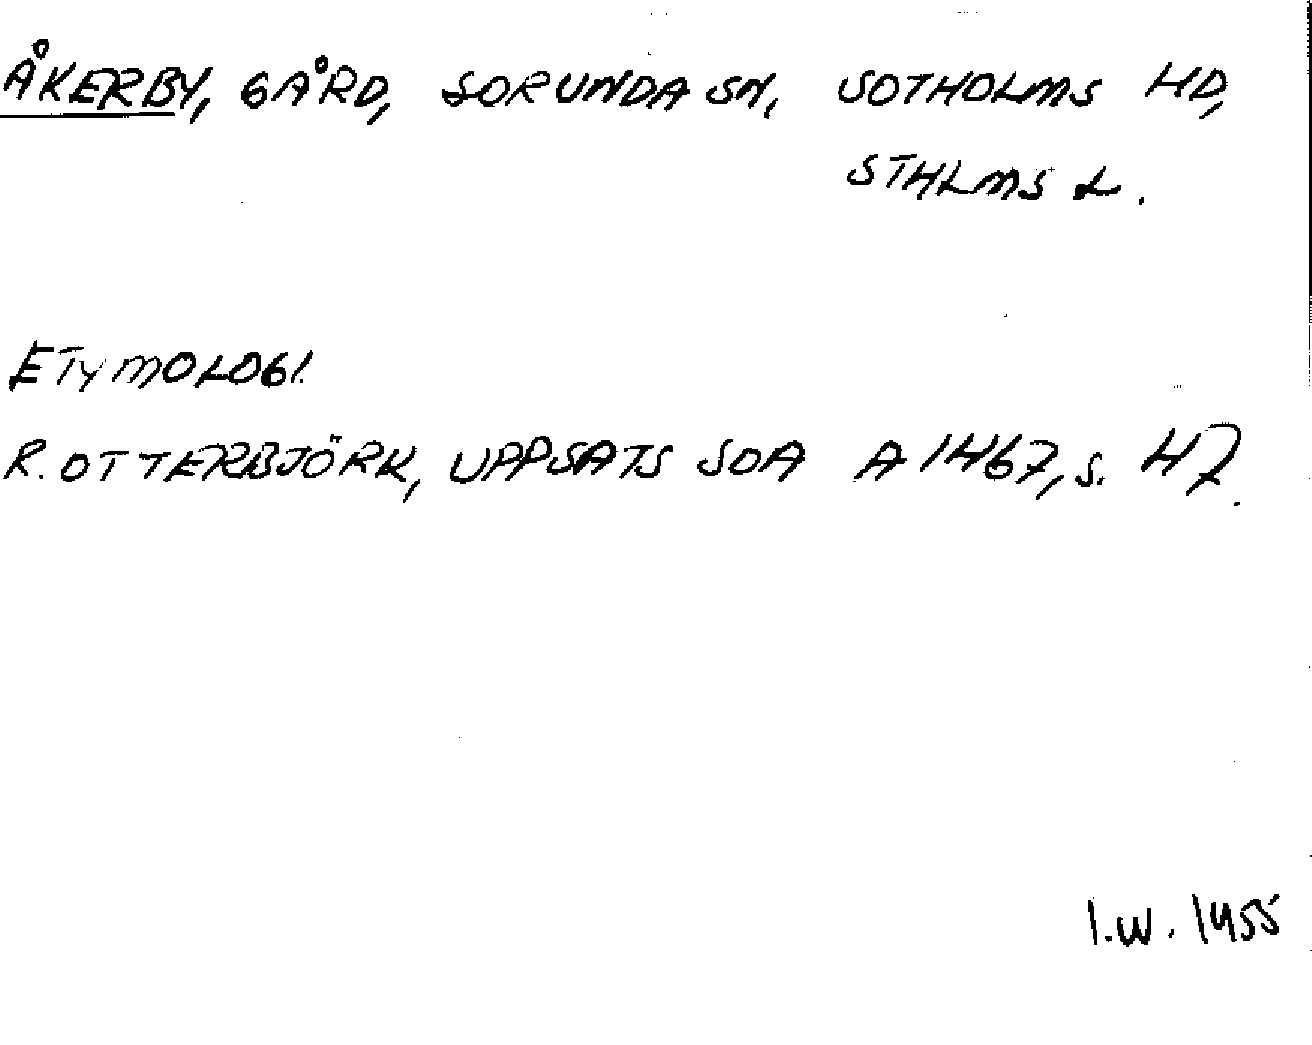 ÅKERBY, GÅRD, SORUNDA SN, SOTHOLMS HD,
STHLMS L.
ETYMOLOGI.
R. OTTERBJÖRK, UPPSATS SOA A 1467, s. 47.
I.W. 1955